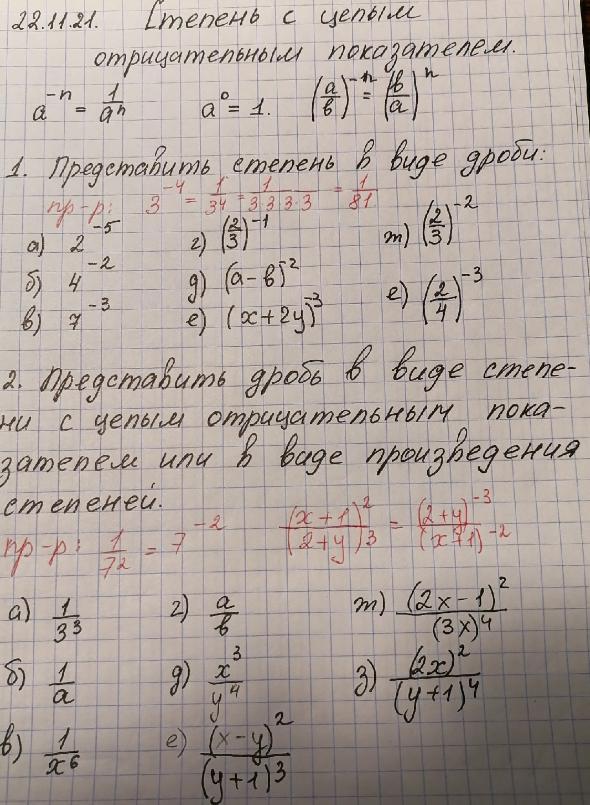 22.11.21. Степень с целым
отрицательным показателем.
a⁻ⁿ = 1/aⁿ a⁰ = 1. (a/b)⁻ⁿ = (b/a)ⁿ
1. Представить степень в виде дроби:
пр-р: 3⁻⁴ = 1/3⁴ = 1/3·3·3·3 = 1/81
а) 2⁻⁵ г) (2/3)⁻¹ ж) (2/3)⁻²
б) 4⁻² д) (a-b)⁻² е) (2/4)⁻³
в) 7⁻³ е) (x+2y)⁻³
2. Представить дробь в виде степе-
ни с целым отрицательным пока-
зателем или в виде произведения
степеней.
пр-р: 1/7² = 7⁻² (x+1)²/(2+y)³ = (2+y)⁻³/(x+1)⁻²
а) 1/3³ г) a/b ж) (2x-1)²/(3x)⁴
б) 1/a д) x³/y⁴ з) (2x)²/(y+1)⁴
в) 1/x⁶ е) (x-y)²/(y+1)³